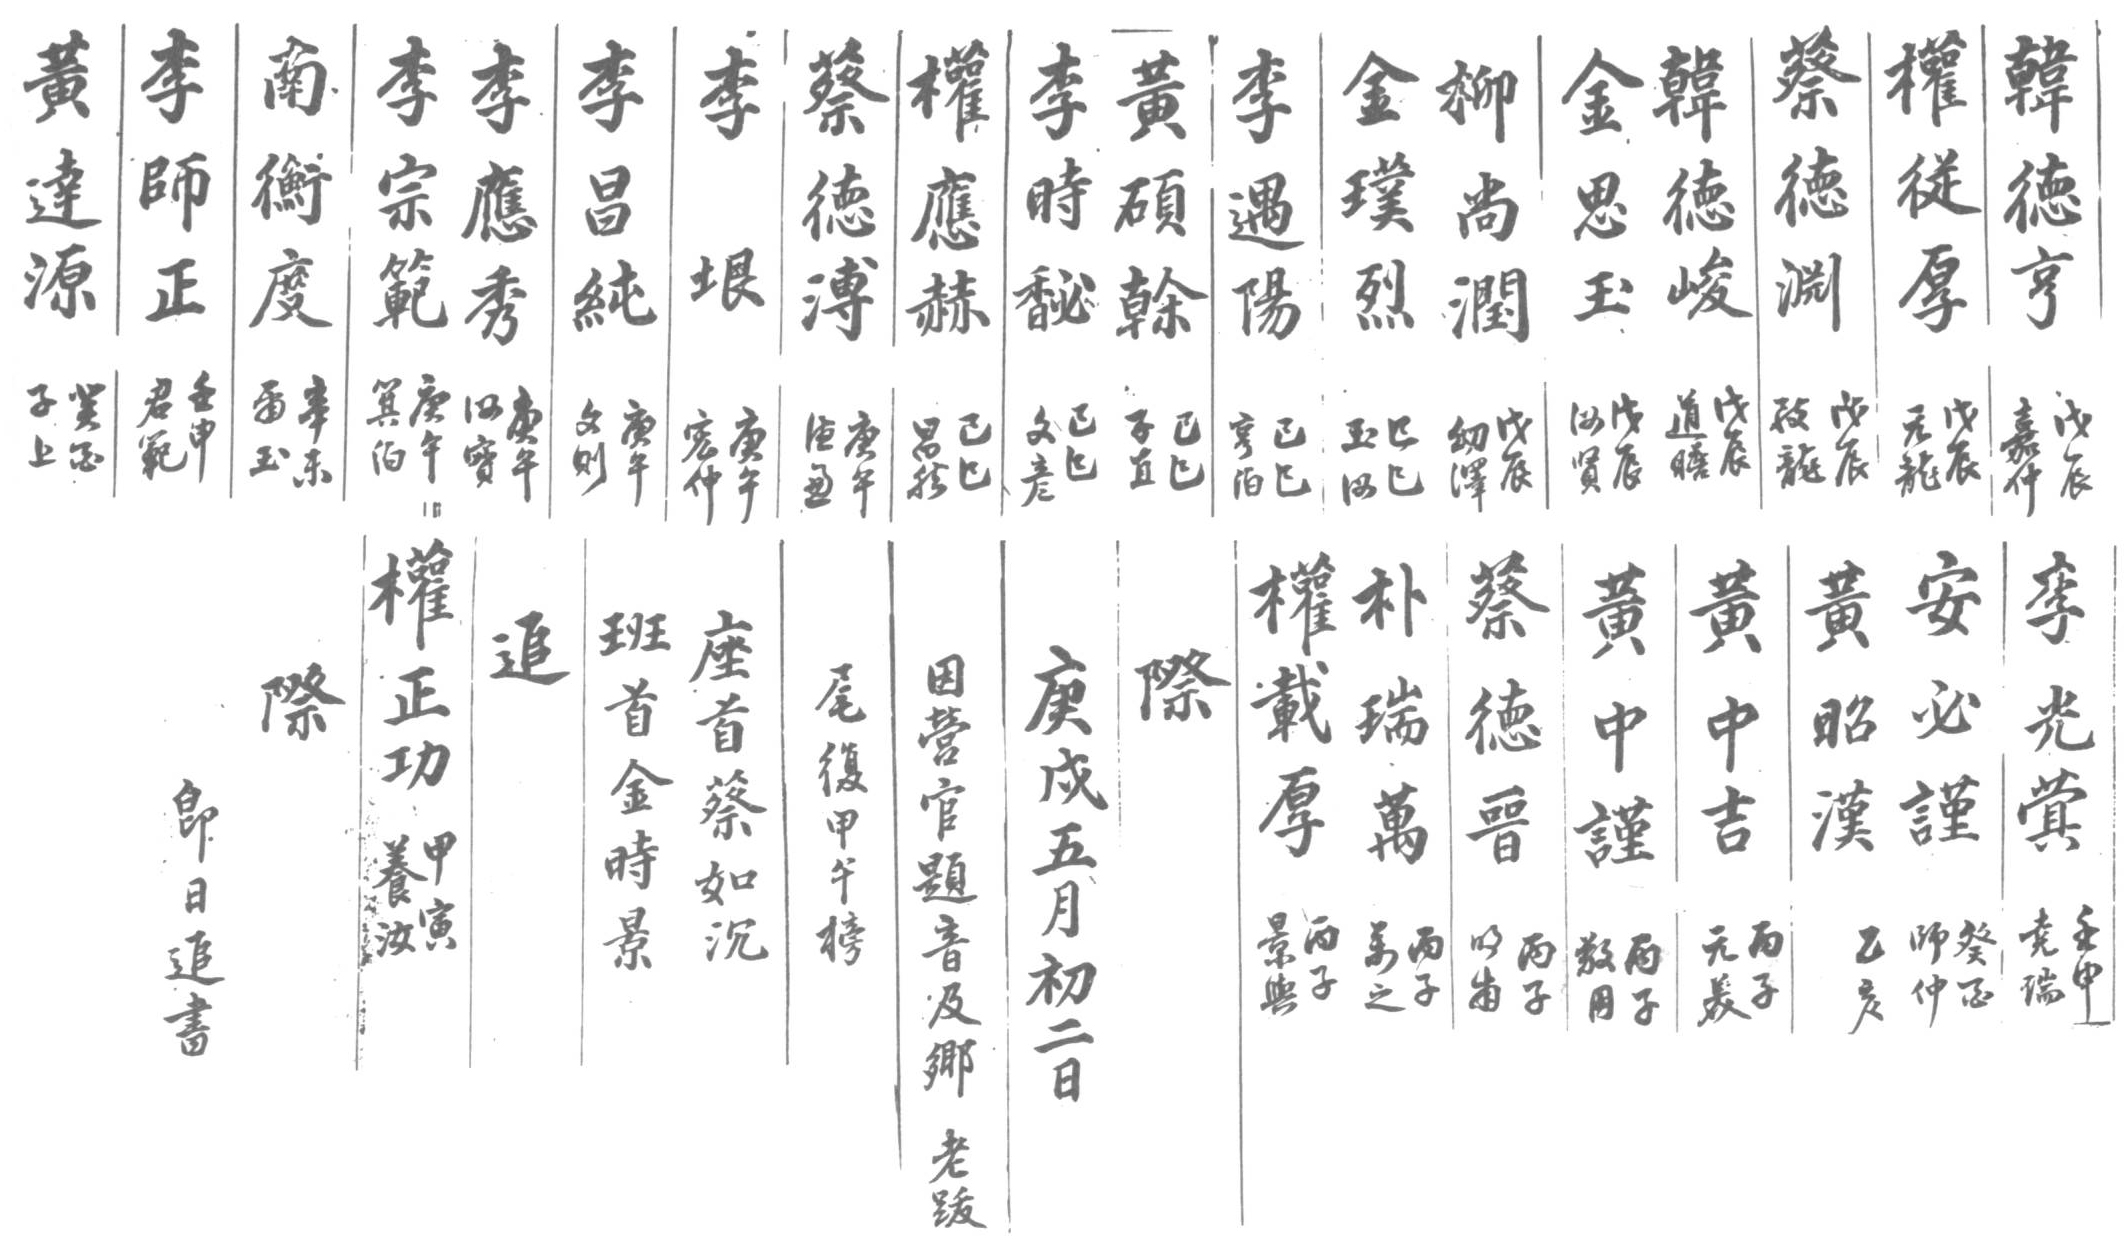 韓德亨 戊辰 嘉仲
權從厚 戊辰 元龍
蔡德淵 戊辰 龍
韓德峻 戊辰 道瞻
金思玉 戊辰 汝賢
柳尚潤 戊辰 幼澤
金璞烈 己巳 玉汝
李遇陽 己巳 亨伯
黃碩榦 己巳 子直
李時馝 己巳 文彦
權應赫 己巳 昌
蔡德溥 庚午
李垠 庚午 宏仲
李昌純 庚午 文則
李應秀 庚午 汝寶
李宗範 庚午 箕伯
南衡度 辛未 玉
李師正 壬申 君範
黃達源 癸酉 子上
李光蓂 壬申 堯瑞
安必謹 癸酉 師仲
黃昭漢 乙亥
黃中吉 丙子 元
黃中謹 丙子 敬用
蔡德晉 丙子 明甫
朴瑞萬 丙子 之
權載厚 丙子 景與
際
庚戌五月初二日
因營官題音及鄉 老
尾復甲午榜
座首蔡如沉
班首金時景
追
權正功 甲寅 養汝
際
卽日追書